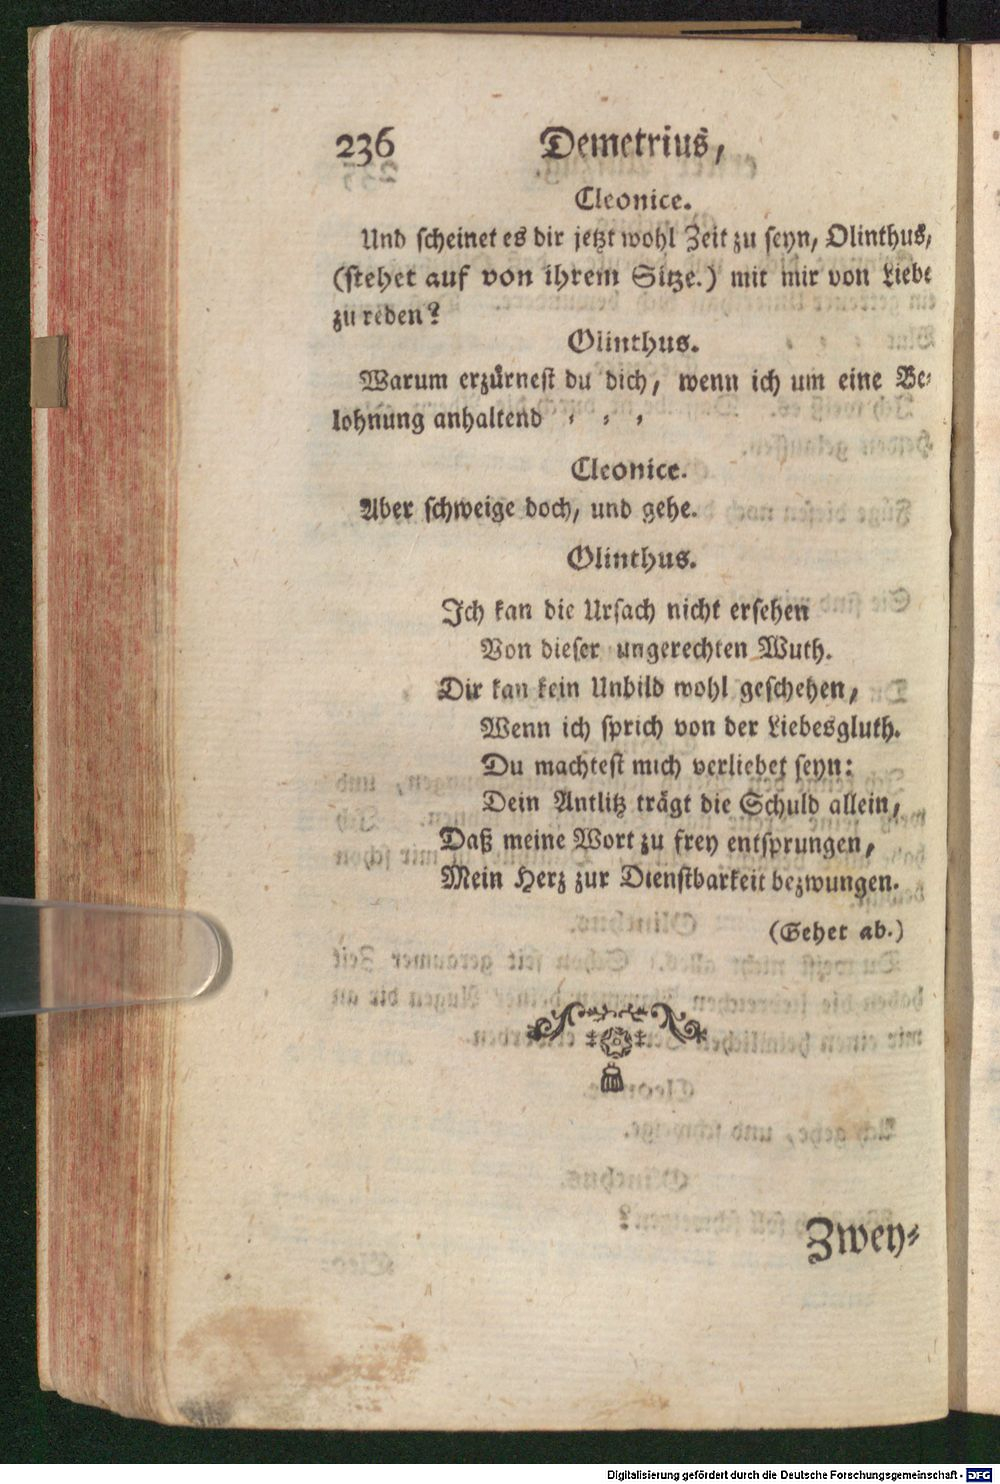 236 Demetrius,
Cleonice.
Und scheinet es dir jetzt wohl Zeit zu seyn, Olinthus,
(stehet auf von ihrem Sitze.) mit mir von Liebe
zu reden?
Olinthus.
Warum erzürnest du dich, wenn ich um eine Be-
lohnung anhaltend - - -
Cleonice.
Aber schweige doch, und gehe.
Olinthus.
Ich kan die Ursach nicht ersehen
Von dieser ungerechten Wuth.
Dir kan kein Unbild wohl geschehen,
Wenn ich sprich von der Liebesgluth.
Du machtest mich verliebet seyn:
Dein Antlitz trägt die Schuld allein,
Daß meine Wort zu frey entsprungen,
Mein Herz zur Dienstbarkeit bezwungen.
(Gehet ab.)
Zwey-
Digitalisierung gefördert durch die Deutsche Forschungsgemeinschaft - DFG